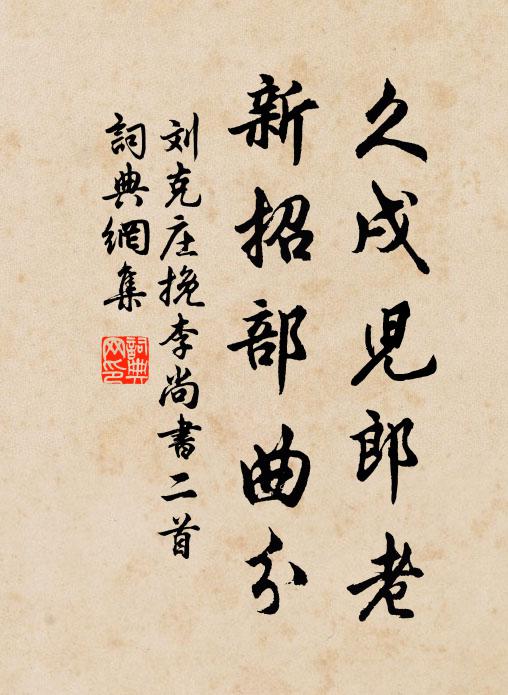 久戍児郎老
新招部曲分
刘克庄挽李尚書二首
詞典網集
詞典
网印